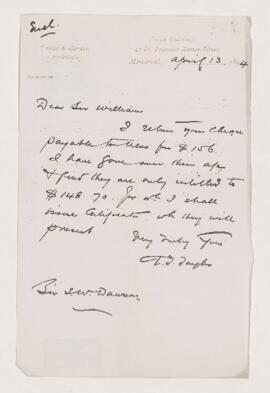 Encl.
Taylor & Gordon
Architects
43 St. Francois Xavier Street
Montreal, April 13. 1894
Dear Sir William
I return your Cheque
payable to for $156.
I have gone over their a/c
& find they are only entitled to
$148.70. for wh. I shall
issue Certificate wh they will
present
Very truly Yours
A. T. Taylor
Sir J. W. Dawson